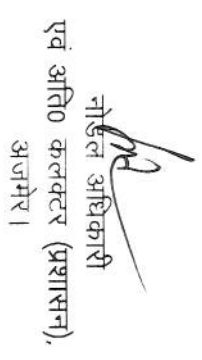 नोडल अधिकारी
एवं अति0 कलक्टर (प्रशासन),
अजमेर।